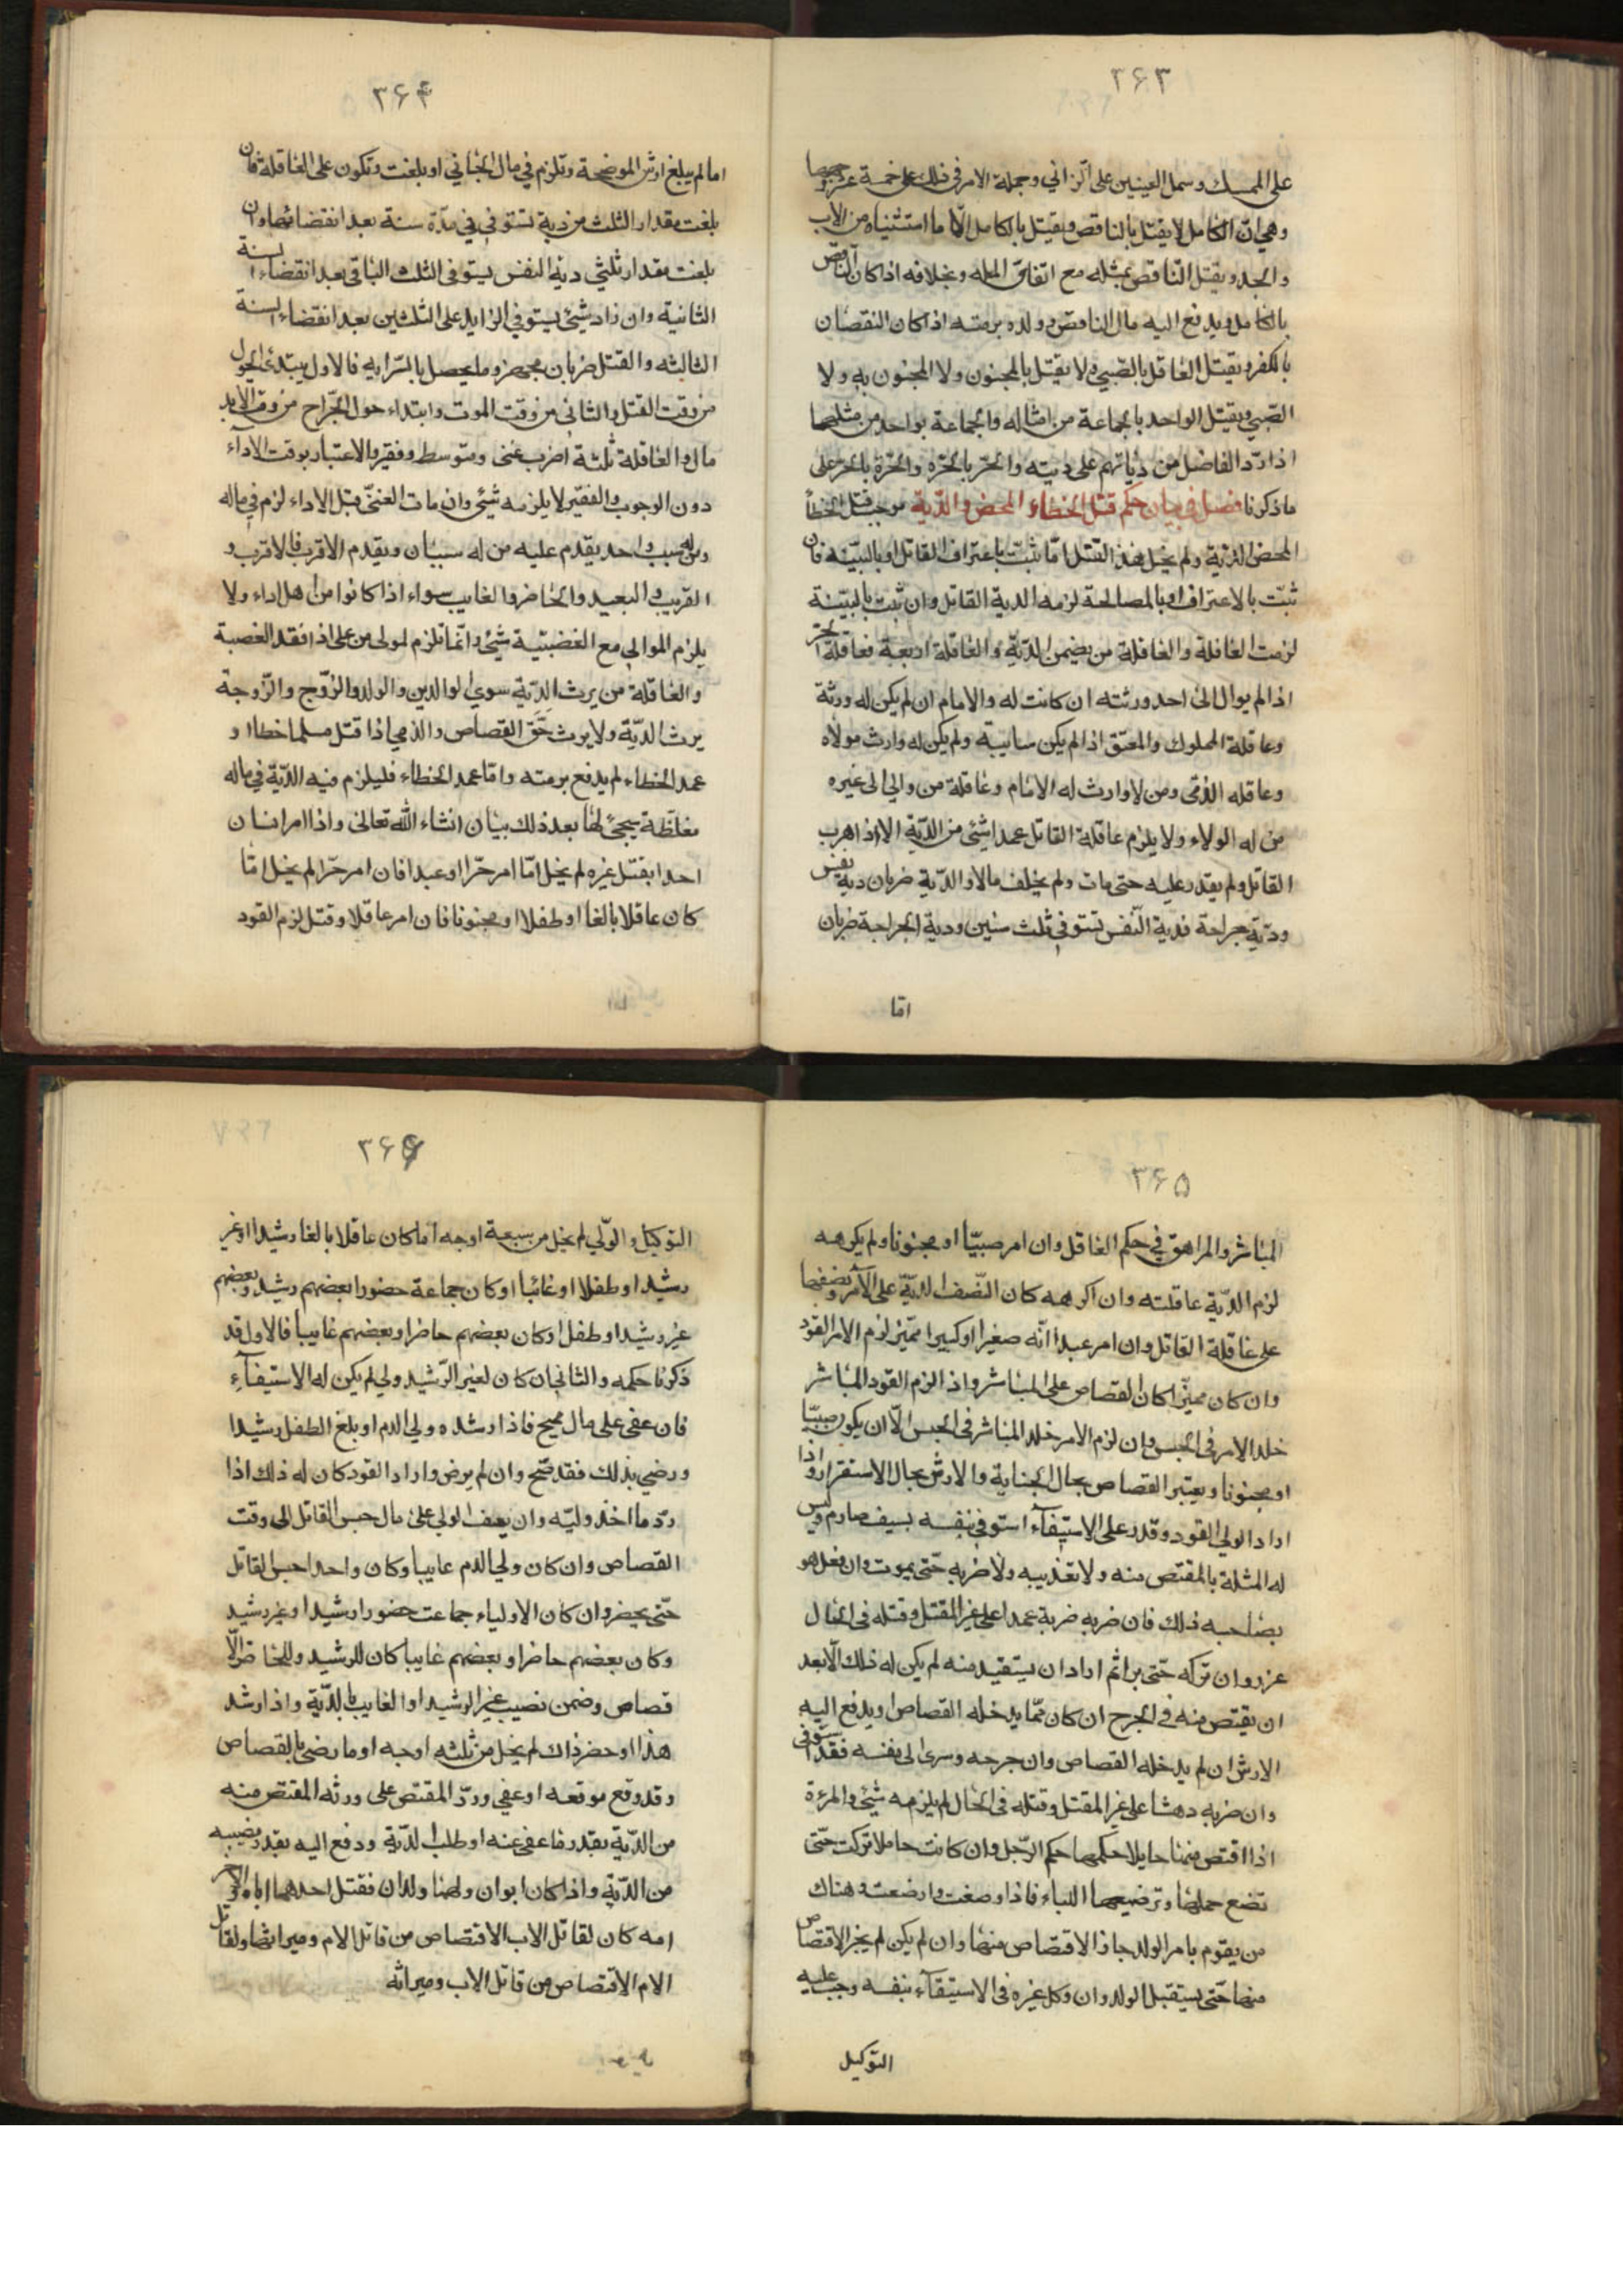 ۳۶۳
على الممسك وسمل العينين على الزاني وجملة الامر في ذلك على خمسة عشر وجها
وهي ان الكامل لا يقتل بالناقص ويقتل بالكامل الّا ما استثنياه من الاب
والجد ويقتل الناقص بمثله مع اتفاق المله وبخلافه اذا كان الناقص
بالكامل ويدفع اليه مال الناقص وولده برمته اذا كان النقصان
بالكفر ويقتل العاقل بالصّبي ولا يقتل بالمجنون ولا المجنون به ولا
الصّبي ويقتل الواحد بالجماعة من امثاله والجماعة بواحد من مثلها
اذا ردّ الفاضل من دياتهم على ديته والحر بالحره والحرة بالحر على
ما ذكرنا فصل في بيان حكم قتل الخطاء المحض والدّية موجب قتل الخطأ
المحض الدّية ولم يخل هذا القتل امّا ثبت باعتراف القاتل او بالبيّنه فان
ثبت بالاعتراف او بالمصالحة لزمه الدية القاتل وان ثبت بالبيّنة
لزمت العاقلة والعاقلة من يضمن الدّيّة والعاقلة اربعة فعاقلة الحر
اذا لم يوال الى احد ورثته ان كانت له والامام ان لم يكن له ورثة
وعاقلة المملوك والمعتق اذا لم يكن سايبة ولم يكن له وارث مولاه
وعاقله الذمّى ومن لا وارث له الامام وعاقلة من والى الى غيره
من له الولاء ولا يلزم عاقلة القاتل عمدا شئى من الدّية الا اذا هرب
القاتل ولم يقدر عليه حتى مات ولم يخلف مالا والدّية ضربان دية نفس
ودّية جراحة فدية النّفس تستوفي ثلث سنين ودية الجراحة ضربان
امّا
۳۶۴
اما لم يبلغ ارش الموضحة وتلزم في مال الجاني او بلغت وتكون على العاقلة فان
بلغت مقدار الثلث من دية تستوفي في مدّة سنة بعد انقضائها وان
بلغت مقدار ثلثي دية النفس يستوفى الثلث الباقي بعد انقضاء السنة
الثانية وان زاد شئى يستوفي الزايد على الثلثين بعد انقضاء السنة
الثالثه والقتل ضربان مجهز وما يحصل بالسّرايه فالاول يبتدئ الحول
من وقت القتل والثاني من وقت الموت وابتداء حول الجراح من وقت
مال والعاقلة ثلثة اضرب غنى ومتوسط وفقير والاعتبار بوقت الاداء
دون الوجوب والفقير لا يلزمه شئى وان مات الغنىّ قبل الاداء لزم في ماله
ومن له سبب واحد يقدم عليه من له سببان ويقدم الاقرب فالاقرب و
القريب والبعيد والحاضر والغايب سواء اذا كانوا من اهل اداء ولا
يلزم الموالي مع العصبيّة شيئ وانما تلزم لمولى من على اذا فقد العصبة
والعاقلة من يرث الدّية سوى الوالدين والولد والزوّج والزّوجة
يرث الدّية ولا يرث حَقّ القصاص والذمي اذا قتل مسلما خطاا و
عمد الخطاء لم يدفع برمته وامّا عمد الخطاء فليلزم فيه الدّية في ماله
مغلظّة يجئ لها بعد ذلك بيان انشاء اللّه تعالى واذا امر انسان
احدا بقتل غيره لم يخل امّا امر حرّا او عبدا فان امر حرّا لم يخل امّا
كان عاقلا بالغا او طفلا او مجنونا فان امر عاقلا وقتل لزم القود
۳۶۵
المباشر والمراهق في حكم العاقل وان امر صبيّا او مجنونا ولم يكرهه
لزم الدّية عاقلته وان اكرهه كان النّصف الدّيّة على الآمر ونصفها
على عاقلة القاتل وان امر عبدا انّه صغيرا او كبيرا مميّز لزم الامر القود
وان كان مميزّا كان القصاص على المباشر واذ الزم القود المباشر
خلد الامر في الحبس وان لزم الامر خلد المباشر في الحبس الّا ان يكون صبيّا
او مجنونا ويعتبر القصاص بحال الجناية والارش بحال الاستقرار واذا
اراد الولي القود وقدر على الاستيفاء استوفي بنفسه بسيف صارم وليس
له المثلة بالمقتص منه ولا تعذيبه ولا ضربه حتّى يموت وان فعل هو
بصاحبه ذلك فان ضربه ضربة عمدا على غير المقتل وقتله في الحال
عزر وان تركه حتّى برا ثم اراد ان يستقيد منه لم يكن له ذلك الّا بعد
ان يقتص منه في الجرح ان كان ممّا يدخله القصاص او يدفع اليه
الارش ان لم يدخله القصاص وان جرحه وسرى الى نفسه فقد استوفى
وان ضربه دهشا على غير المقتل وقتله في الحال لم يلزمه شيئ والمرءة
اذا اقتص منها حايلا حكمها حكم الرّجل وان كانت حاملا تركت حتّى
تضع حملها وترضيعها اللباء فاذا وضعت وارضعت وهناك
من يقوم بامر الولد جاز الاقتصاص منها وان لم يكن لم يجز الاقتصاص
منها حتّى يستقبل الولد وان وكل غيره في الاستيفاء بنفسه وجب عليه
التوكيل
۳۶۶
التوكيل والولّي لم يخل من سبعة اوجه اما كان عاقلا بالغا رشيدا او غير
رشيد او طفلا او غائبا او كان جماعة حضورا بعضهم رشيد وبعضهم
غير رشيد او طفل او كان بعضهم حاضرا وبعضهم غايبا فالاول قد
ذكرنا حكمه والثاني ان كان لغير الرّشيد ولي لم يكن له الاستيفآءِ
فان عفى على مال صحيح فاذا رشده ولي الدم او بلغ الطفل رشيدا
ورضي بذلك فقد صّح وان لم يرض واراد القود كان له ذلك اذا
ردّ ما اخذ وليّه وان يعف الولي على مال حبس القاتل الى وقت
القصاص وان كان ولي الدم غايبا وكان واحدا حبس القاتل
حتّى يحضر وان كان الاولياء جماعت حضورا رشيدا وغير رشيد
وكان بعضهم حاضرا وبعضهم غايبا كان للرشيد وللحاضر الّا
قصاص وضمن نصيب غير الرشيد او الغايب بالدّية واذا رشد
هذا او حضر ذاك لم يخل من ثلثه اوجه اوما رضى بالقصاص
وقد وقع موقعه او عفي وردّ المقتص على ورثه المقتص منه
من الدّية بقدر ما عفى عنه او طلب الدّية ودفع اليه بقدر نصيبه
من الدّية واذا كان ابوان ولهما ولدان فقتل احدهما اباه والآخر
امه كان لقاتل الاب الاقتصاص من قاتل الام وميراثها ولقاتل
الام الاقتصاص من قاتل الاب وميراثه